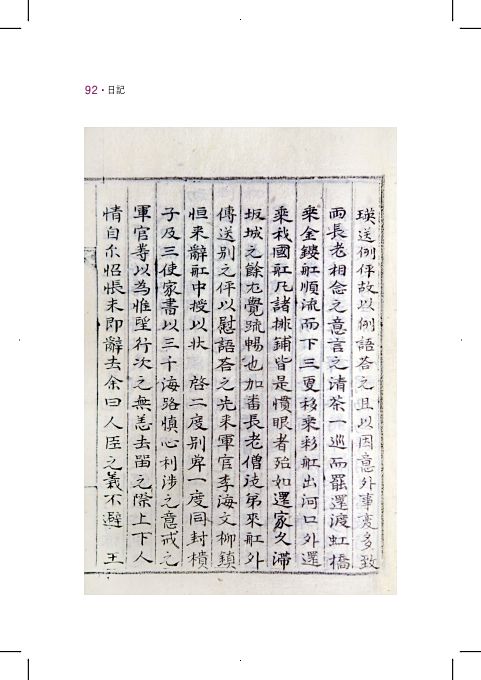 92 · 日記
瑛送例伻故以例語荅之且以因意外事変多致
两長老相念之意言之清茶一巡而罷還渡虹橋
乗金鏤舡順流而下三更移乗彩舡出河口外還
乗我國舡凡諸排鋪皆是慣眼者殆如還家久滯
坂城之餘尤覺疏暢也加番長老僧徒弟來舡外
傳送别之伻以慰語荅之先来軍官李海文柳鎮
恒来辭舡中授以状 啓二度别單一度同封樻
子及三使家書以三千海路慎心利涉之意戒之
軍官等以為惟望行次之無恙去留之際上下人
情自尒怊悵未即辭去余曰人臣之義不避 王